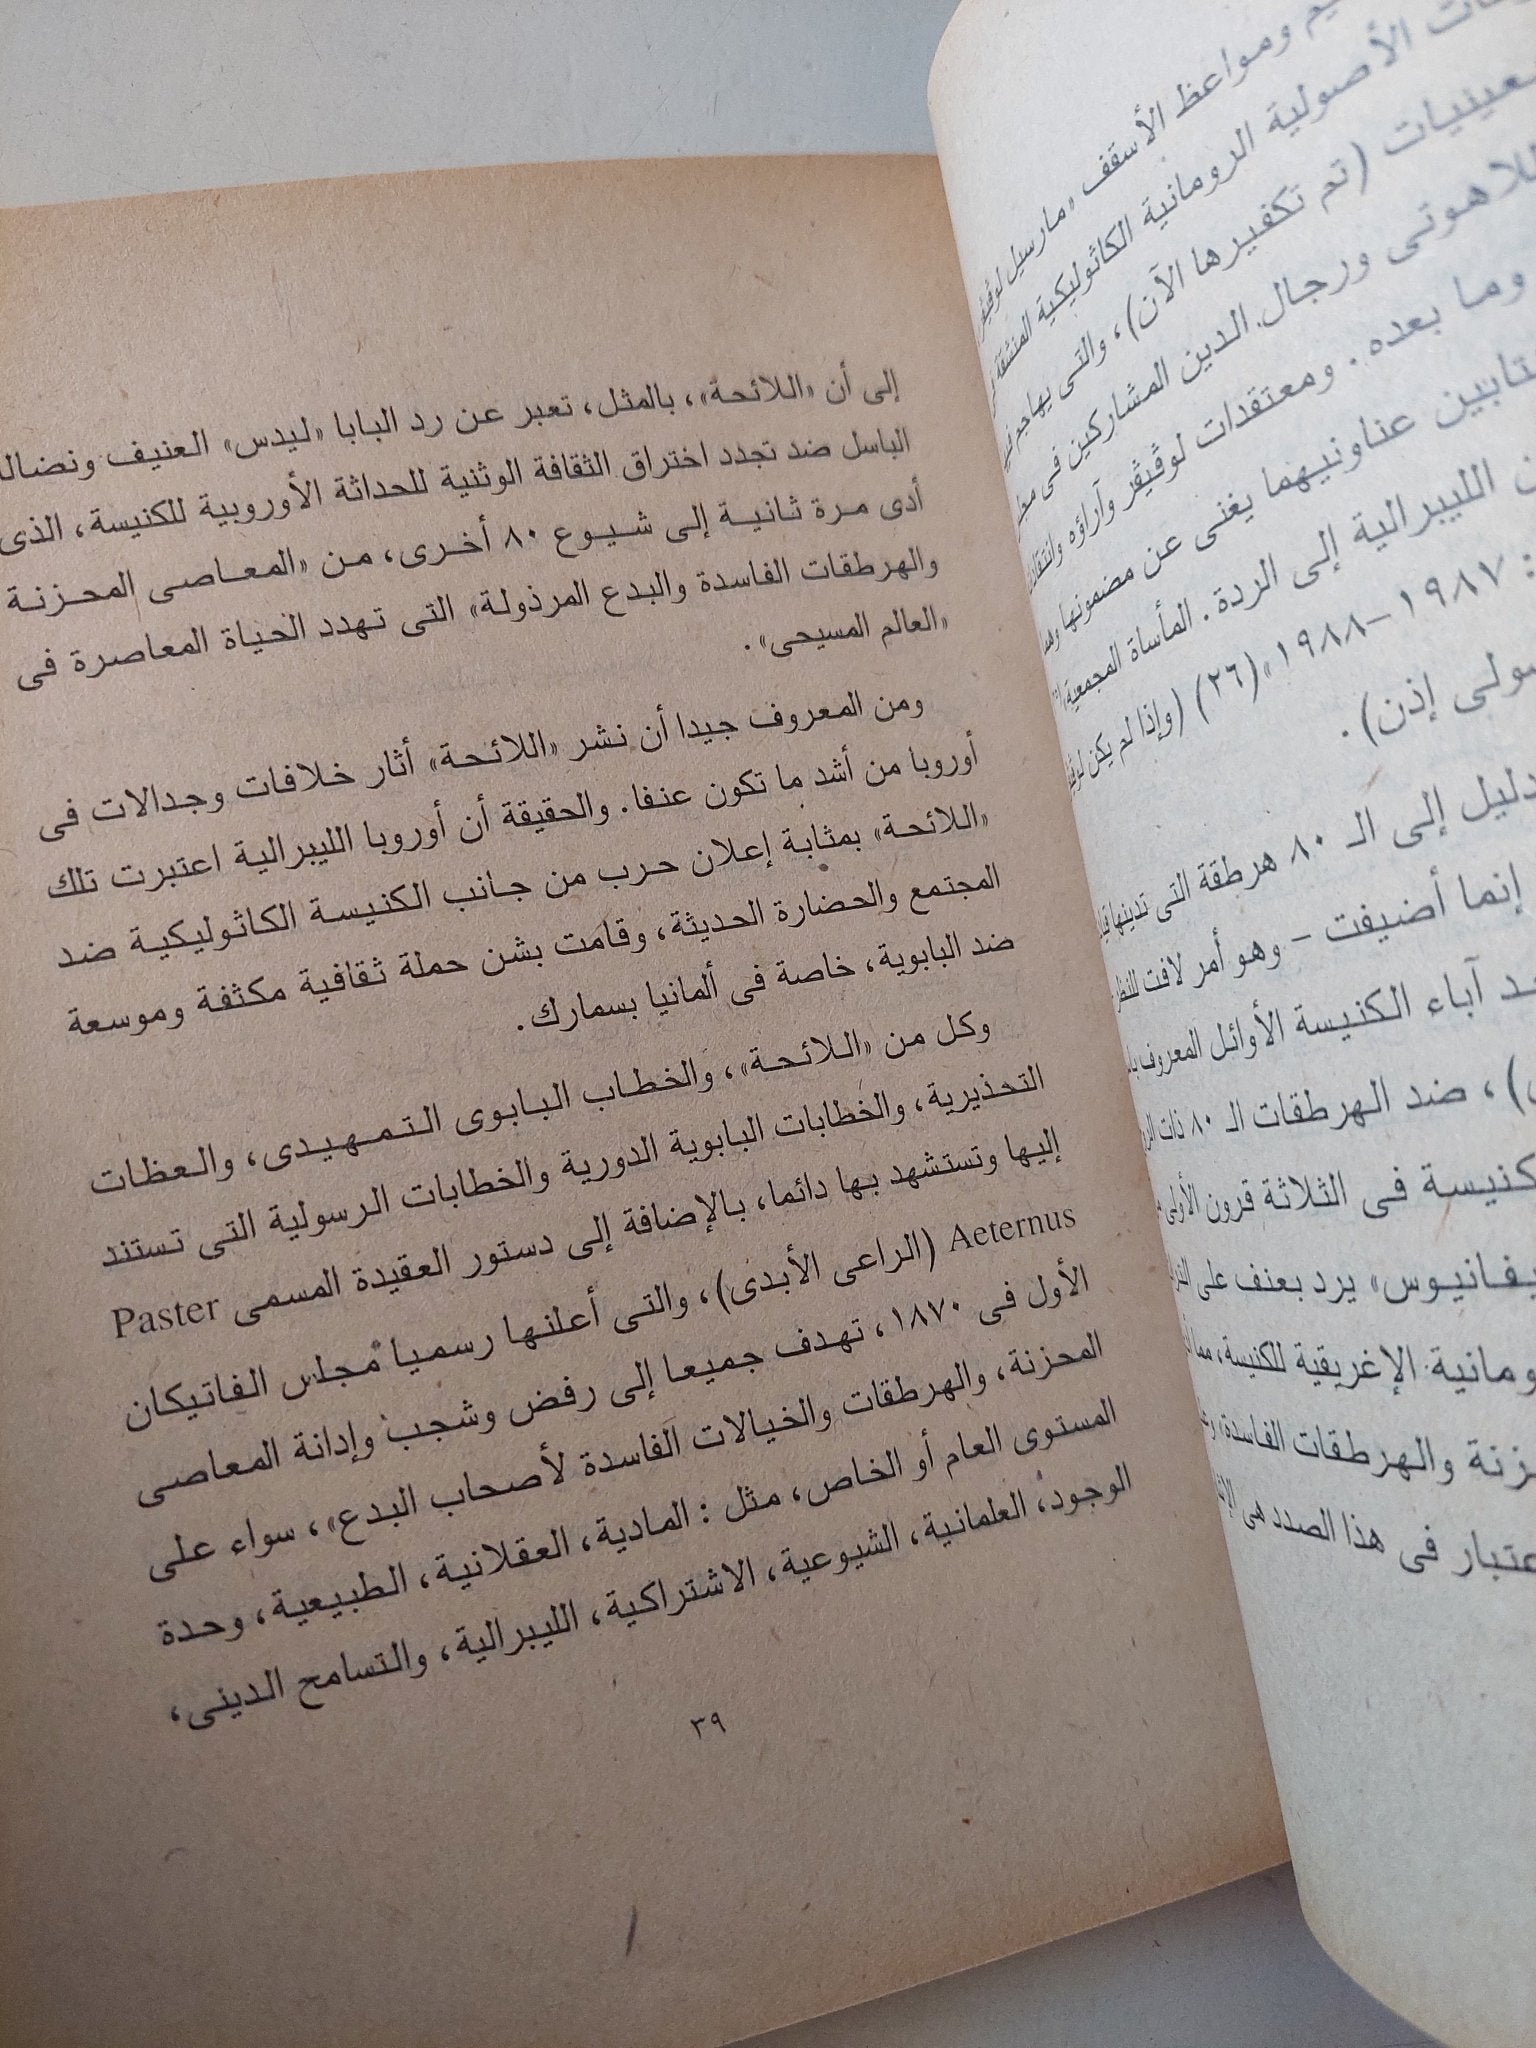 يم ومواعظ الأسقف «مارسيل
الأصولية الرومانية الكاثوليكية المنشقة
(تم تكفيرها الآن)، والتى يهاجم
ورجال الدين المشاركين فى
وما بعده. ومعتقدات لوڤيڤر وآراؤه
عناونيهما يغنى عن مضمونها
الليبرالية إلى الردة. المأساة المجمعية
: ١٩٨٧-١٩٨٨» (٢٦) (وإذا لم يكن
إذن).
إلى الـ ٨٠ هرطقة التى تدينها
إنما أضيفت - وهو أمر لافت للنظر
آباء الكنيسة الأوائل المعروف
، ضد الهرطقات الـ ٨٠ ذات
كنيسة فى الثلاثة قرون الأولى
يفانيوس» يرد بعنف على
ومانية الإغريقية للكنيسة، مما
زنة والهرطقات الفاسدة»
عتبار فى هذا الصدد هى
إلى أن «اللائحة»، بالمثل، تعبر عن رد البابا «ليدس» العنيف ونضاله
الباسل ضد تجدد اختراق الثقافة الوثنية للحداثة الأوروبية للكنيسة، الذى
أدى مرة ثانية إلى شيوع ٨٠ أخرى، من «المعاصى المحزنة
والهرطقات الفاسدة والبدع المرذولة» التى تهدد الحياة المعاصرة فى
«العالم المسيحى».
ومن المعروف جيدا أن نشر «اللائحة» أثار خلافات وجدالات فى
أوروبا من أشد ما تكون عنفا. والحقيقة أن أوروبا الليبرالية اعتبرت تلك
«اللائحة» بمثابة إعلان حرب من جانب الكنيسة الكاثوليكية ضد
المجتمع والحضارة الحديثة، وقامت بشن حملة ثقافية مكثفة وموسعة
ضد البابوية، خاصة فى ألمانيا بسمارك.
وكل من «اللائحة»، والخطاب البابوى التمهيدى، والعظات
التحذيرية، والخطابات البابوية الدورية والخطابات الرسولية التى تستند
إليها وتستشهد بها دائما، بالإضافة إلى دستور العقيدة المسمى Paster
Aeternus (الراعى الأبدى)، والتى أعلنها رسميا مجلس الفاتيكان
الأول فى ١٨٧٠، تهدف جميعا إلى رفض وشجب وإدانة المعاصى
المحزنة، والهرطقات والخيالات الفاسدة لأصحاب البدع»، سواء على
المستوى العام أو الخاص، مثل : المادية، العقلانية، الطبيعية، وحدة
الوجود، العلمانية، الشيوعية، الاشتراكية، الليبرالية، والتسامح الدينى،
٣٩